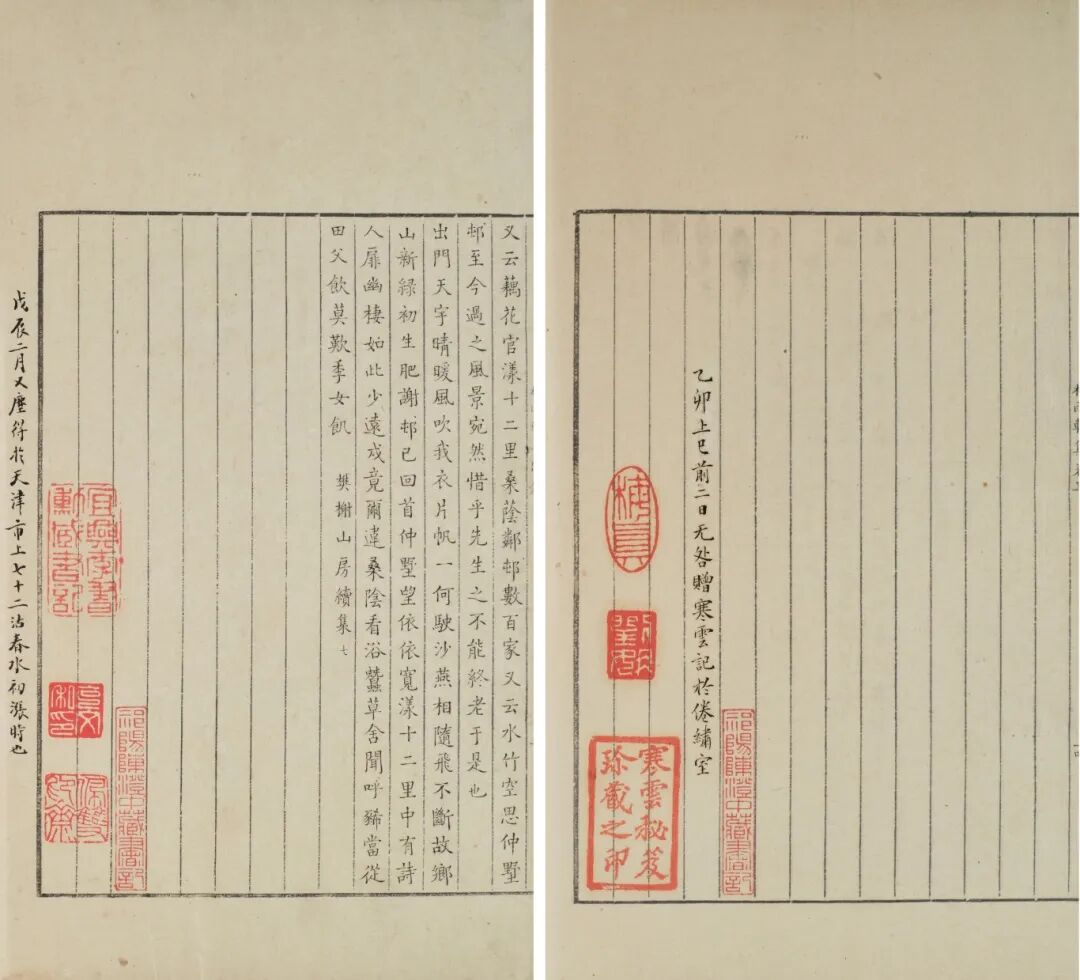 乙卯上巳前二日无咎贈寒雲記於倦繡室
祁陽陳澄中藏書記
梅真
寒雲秘笈
珍藏之印
又云藕花官漾十二里桑蔭鄰邨數百家又云水竹空思仲墅
邨至今過之風景宛然惜乎先生之不能終老于是也
出門天宇晴暖風吹我衣片帆一何駛沙燕相隨飛不斷故鄉
山新綠初生肥謝邨已回首仲墅望依依寬漾十二里中有詩
人扉幽棲如此少遠戍竟爾違桑陰看浴蠶草舍聞呼豨當從
田父飲莫歎季女飢 樊榭山房續集七
祁陽陳澄中藏書記
宜興李書
勳藏書記
戊辰二月又塵得於天津市上七十二沽春水初漲時也